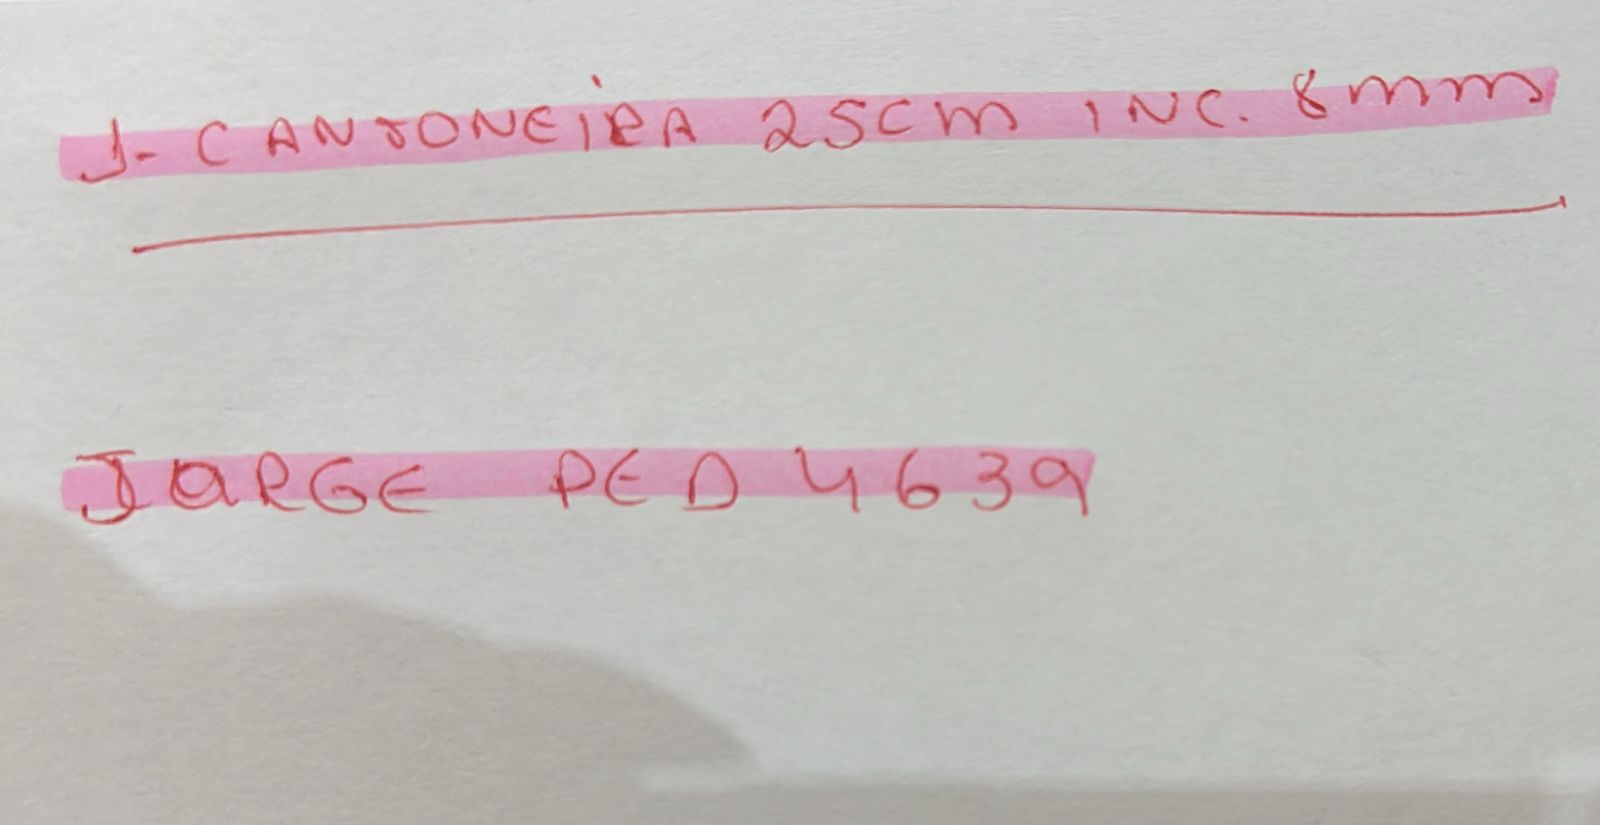 1- CANTONEIRA 25CM INC. 8mm
JORGE PED 4639